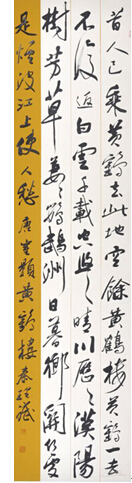 昔人已乘黄鶴去此地空餘黄鶴樓黄鶴一去
不復返白雲千載空悠悠晴川歷歷漢陽
樹芳草萋萋鸚鵡洲日暮鄉關何處
是煙波江上使人愁 唐崔顥黄鶴樓